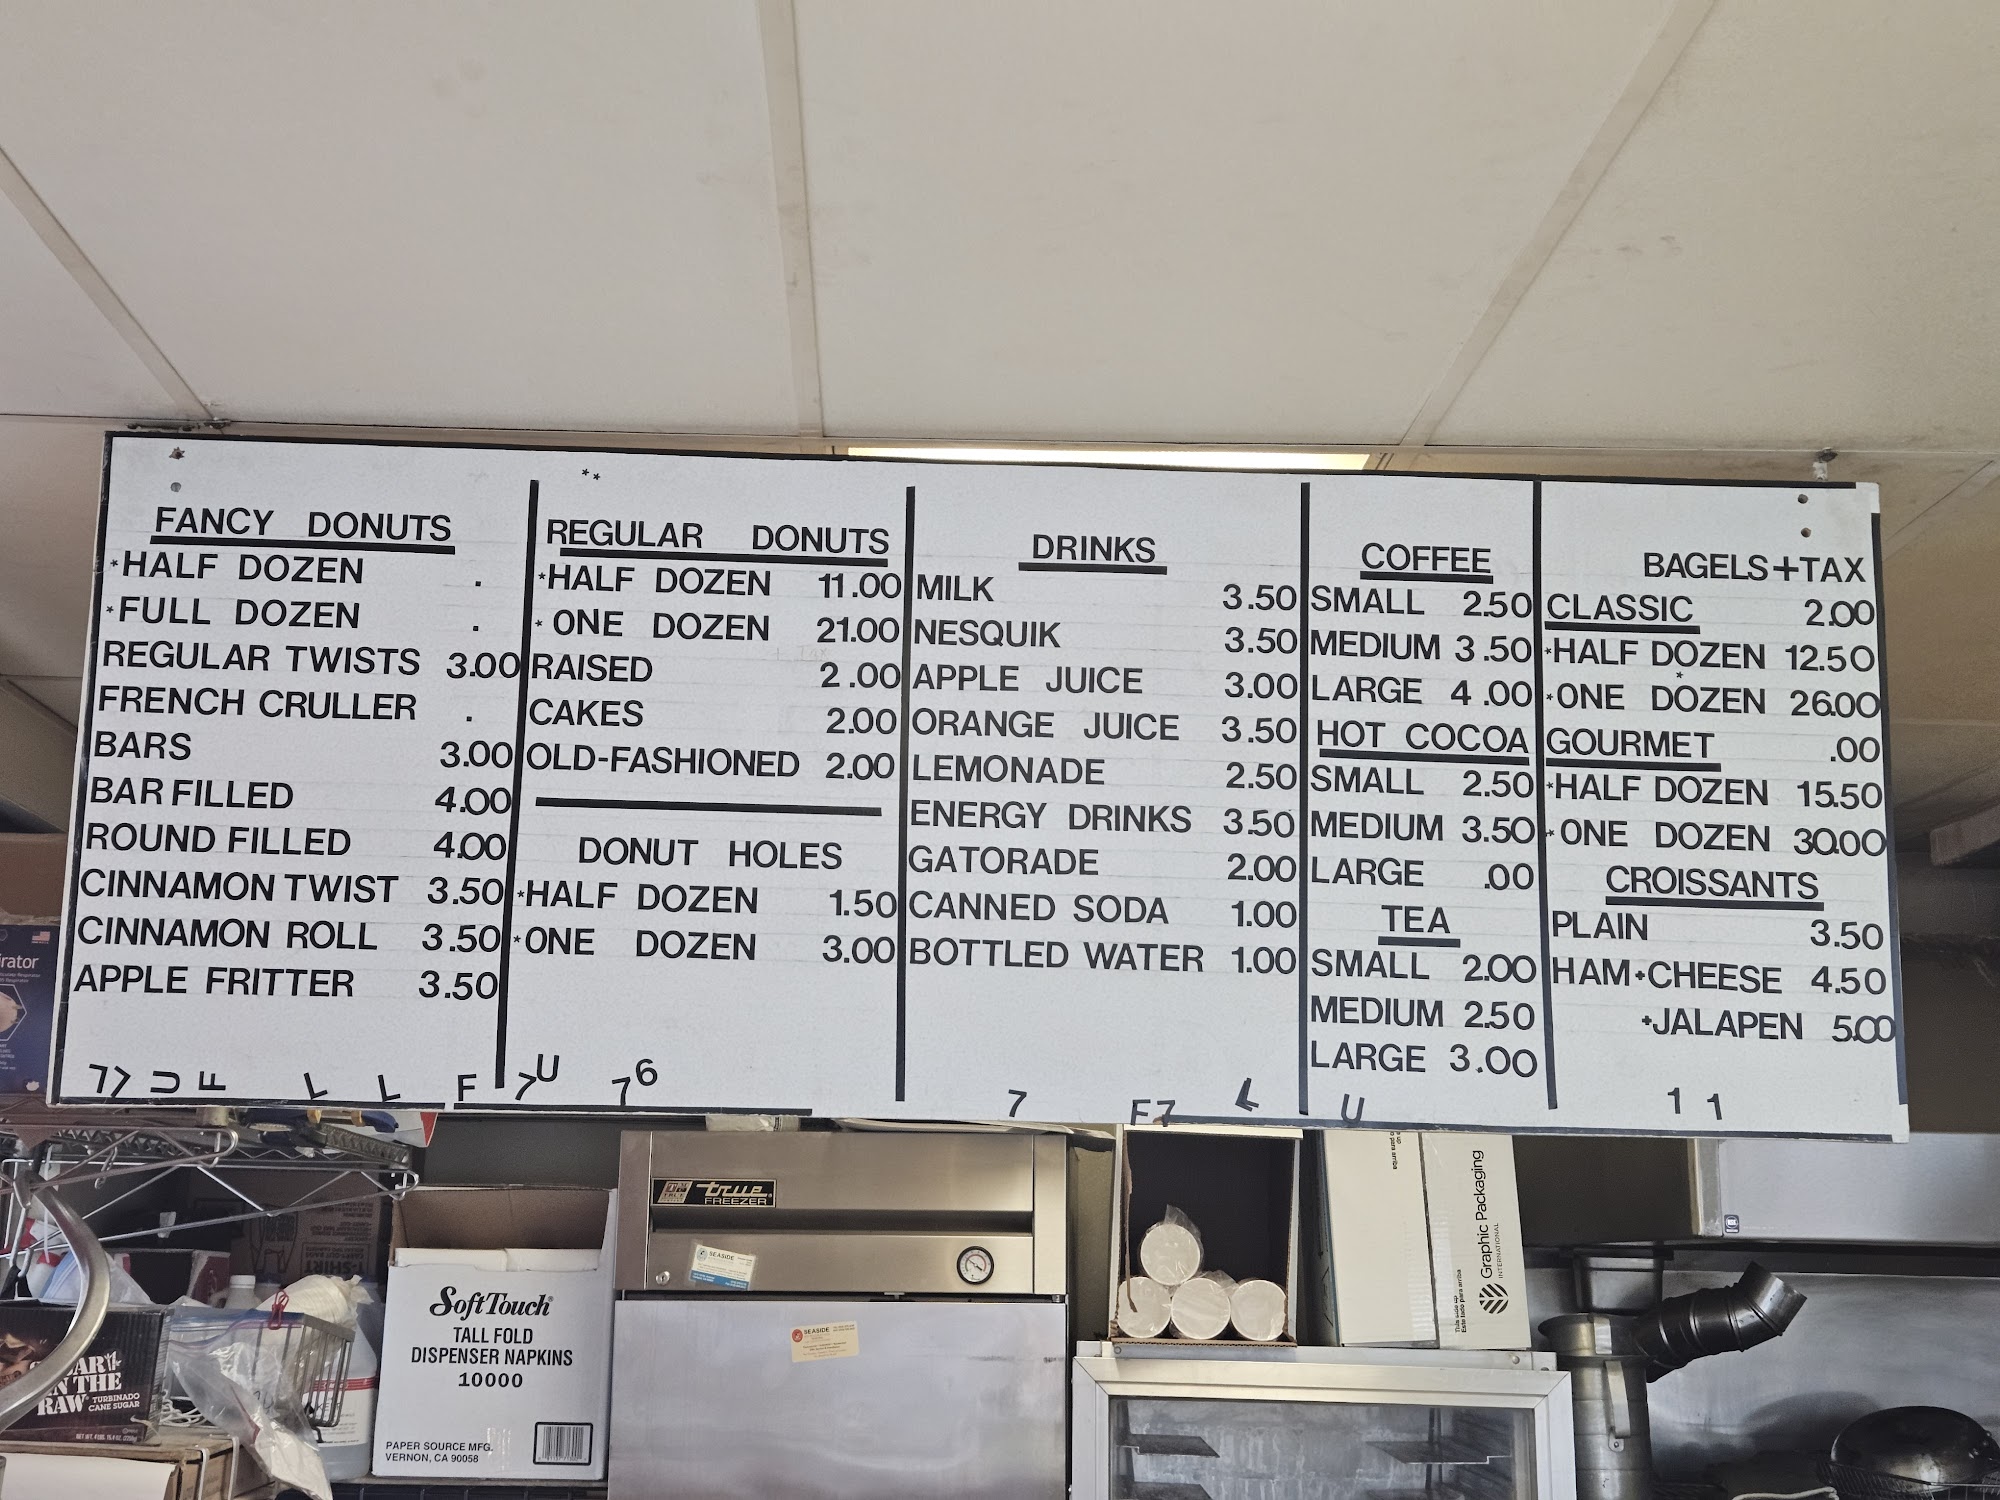 **
FANCY DONUTS
*HALF DOZEN .
*FULL DOZEN .
REGULAR TWISTS 3.00
FRENCH CRULLER .
BARS 3.00
BAR FILLED 4.00
ROUND FILLED 4.00
CINNAMON TWIST 3.50
CINNAMON ROLL 3.50
APPLE FRITTER 3.50
REGULAR DONUTS
*HALF DOZEN 11.00
*ONE DOZEN 21.00
+ Tax
RAISED 2.00
CAKES 2.00
OLD-FASHIONED 2.00
DONUT HOLES
*HALF DOZEN 1.50
*ONE DOZEN 3.00
DRINKS
MILK 3.50
NESQUIK 3.50
APPLE JUICE 3.00
ORANGE JUICE 3.50
LEMONADE 2.50
ENERGY DRINKS 3.50
GATORADE 2.00
CANNED SODA 1.00
BOTTLED WATER 1.00
COFFEE
SMALL 2.50
MEDIUM 3.50
LARGE 4.00
HOT COCOA
SMALL 2.50
MEDIUM 3.50
LARGE .00
TEA
SMALL 2.00
MEDIUM 2.50
LARGE 3.00
BAGELS+TAX
CLASSIC 2.00
*HALF DOZEN 12.50
*ONE DOZEN 26.00
GOURMET .00
*HALF DOZEN 15.50
*ONE DOZEN 30.00
CROISSANTS
PLAIN 3.50
HAM+CHEESE 4.50
+JALAPEN 5.00
7 7 U F L L F 7 U 7 6 7 F 7 L U 1 1
true
FREEZER
SEASIDE
SEASIDE
Soft Touch
TALL FOLD
DISPENSER NAPKINS
10000
PAPER SOURCE MFG.
VERNON, CA 90058
IN THE
RAW
TURBINADO
CANE SUGAR
Graphic Packaging
INTERNATIONAL
This side up
Este lado para arriba
T-SHIRT
irator